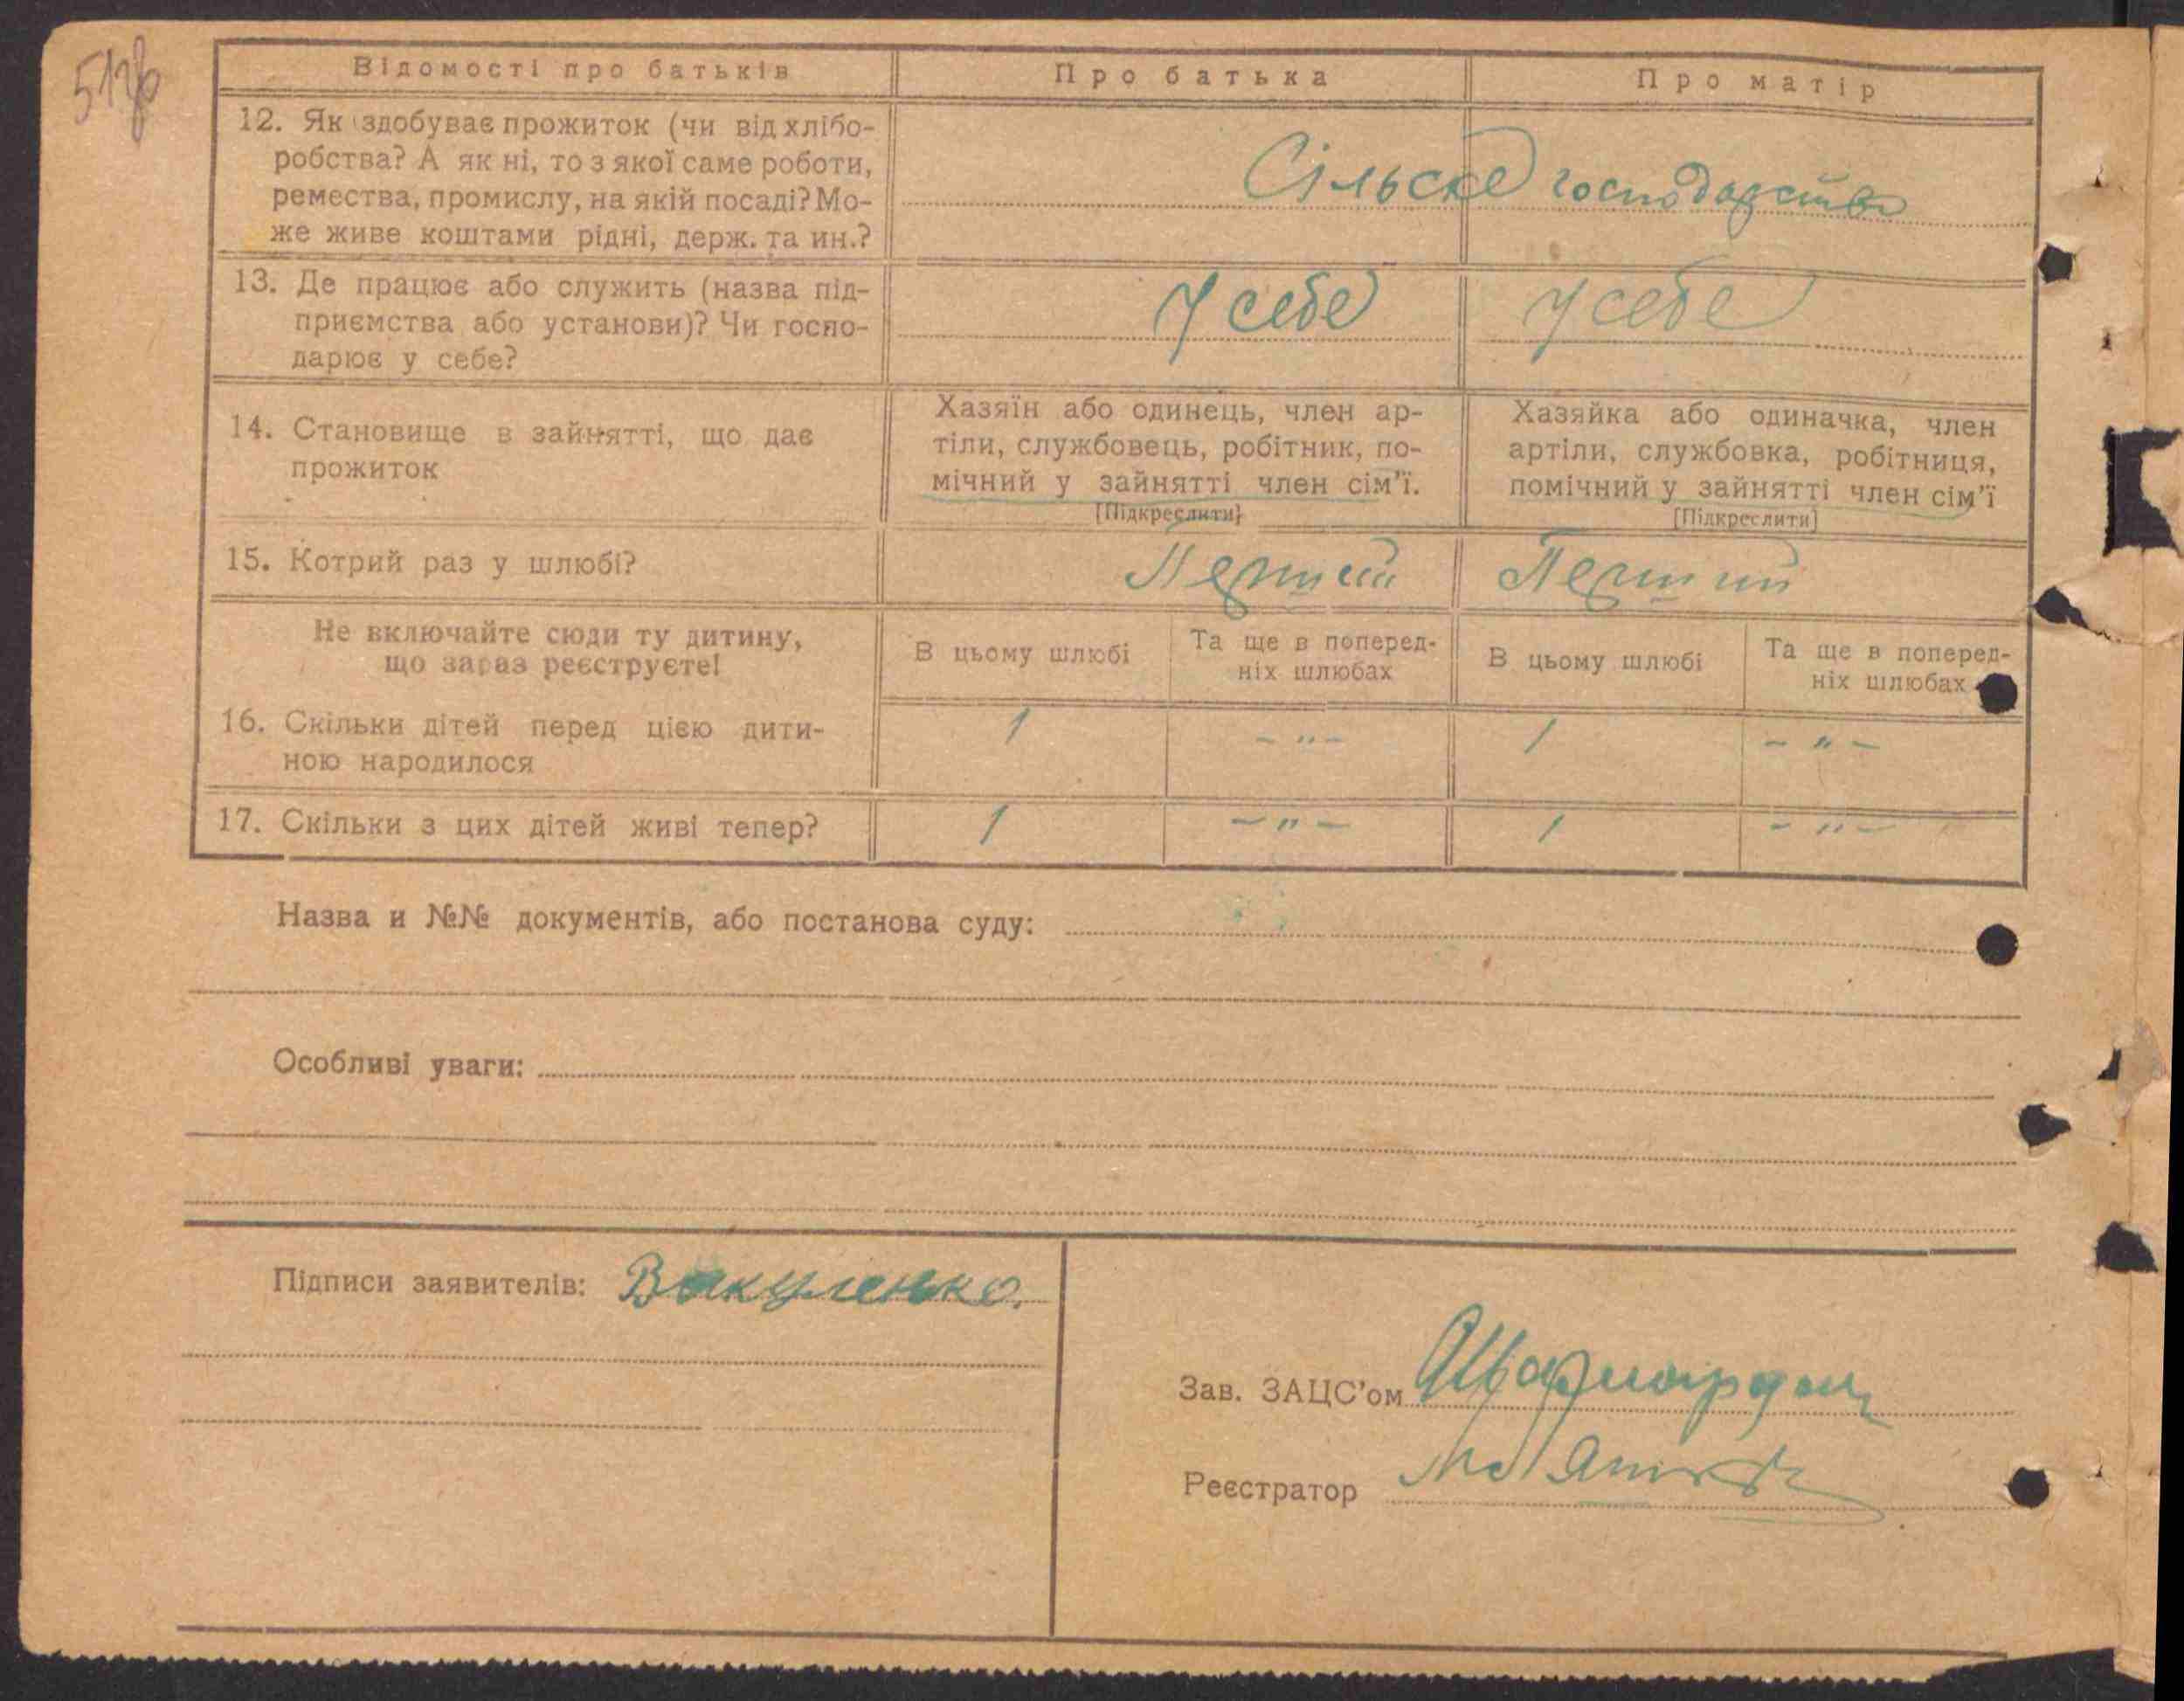 51зв
Відомості про батьків
Про батька
Про матір
12. Як здобуває прожиток (чи від хлібо-
робства? А як ні, то з якої саме роботи,
ремества, промислу, на якій посаді? Мо-
же живе коштами рідні, держ. та ин.?
Сільске господарство
13. Де працює або служить (назва під-
приємства або установи)? Чи госпо-
дарює у себе?
У себе
У себе
14. Становище в зайнятті, що дає
прожиток
Хазяїн або одинець, член ар-
тіли, службовець, робітник, по-
мічний у зайнятті член сім'ї.
[Підкреслити]
Хазяйка або одиначка, член
артіли, службовка, робітниця,
помічний у зайнятті член сім'ї
[Підкреслити]
15. Котрий раз у шлюбі?
Перший
Перший
Не включайте сюди ту дитину,
що зараз реєструєте!
В цьому шлюбі
Та ще в поперед-
ніх шлюбах
В цьому шлюбі
Та ще в поперед-
ніх шлюбах
16. Скільки дітей перед цією дити-
ною народилося
1
- " -
1
- " -
17. Скільки з цих дітей живі тепер?
1
- " -
1
- " -
Назва и №№ документів, або постанова суду:
Особливі уваги:
Підписи заявителів: Вакуленко.
Зав. ЗАЦС'ом
Реєстратор